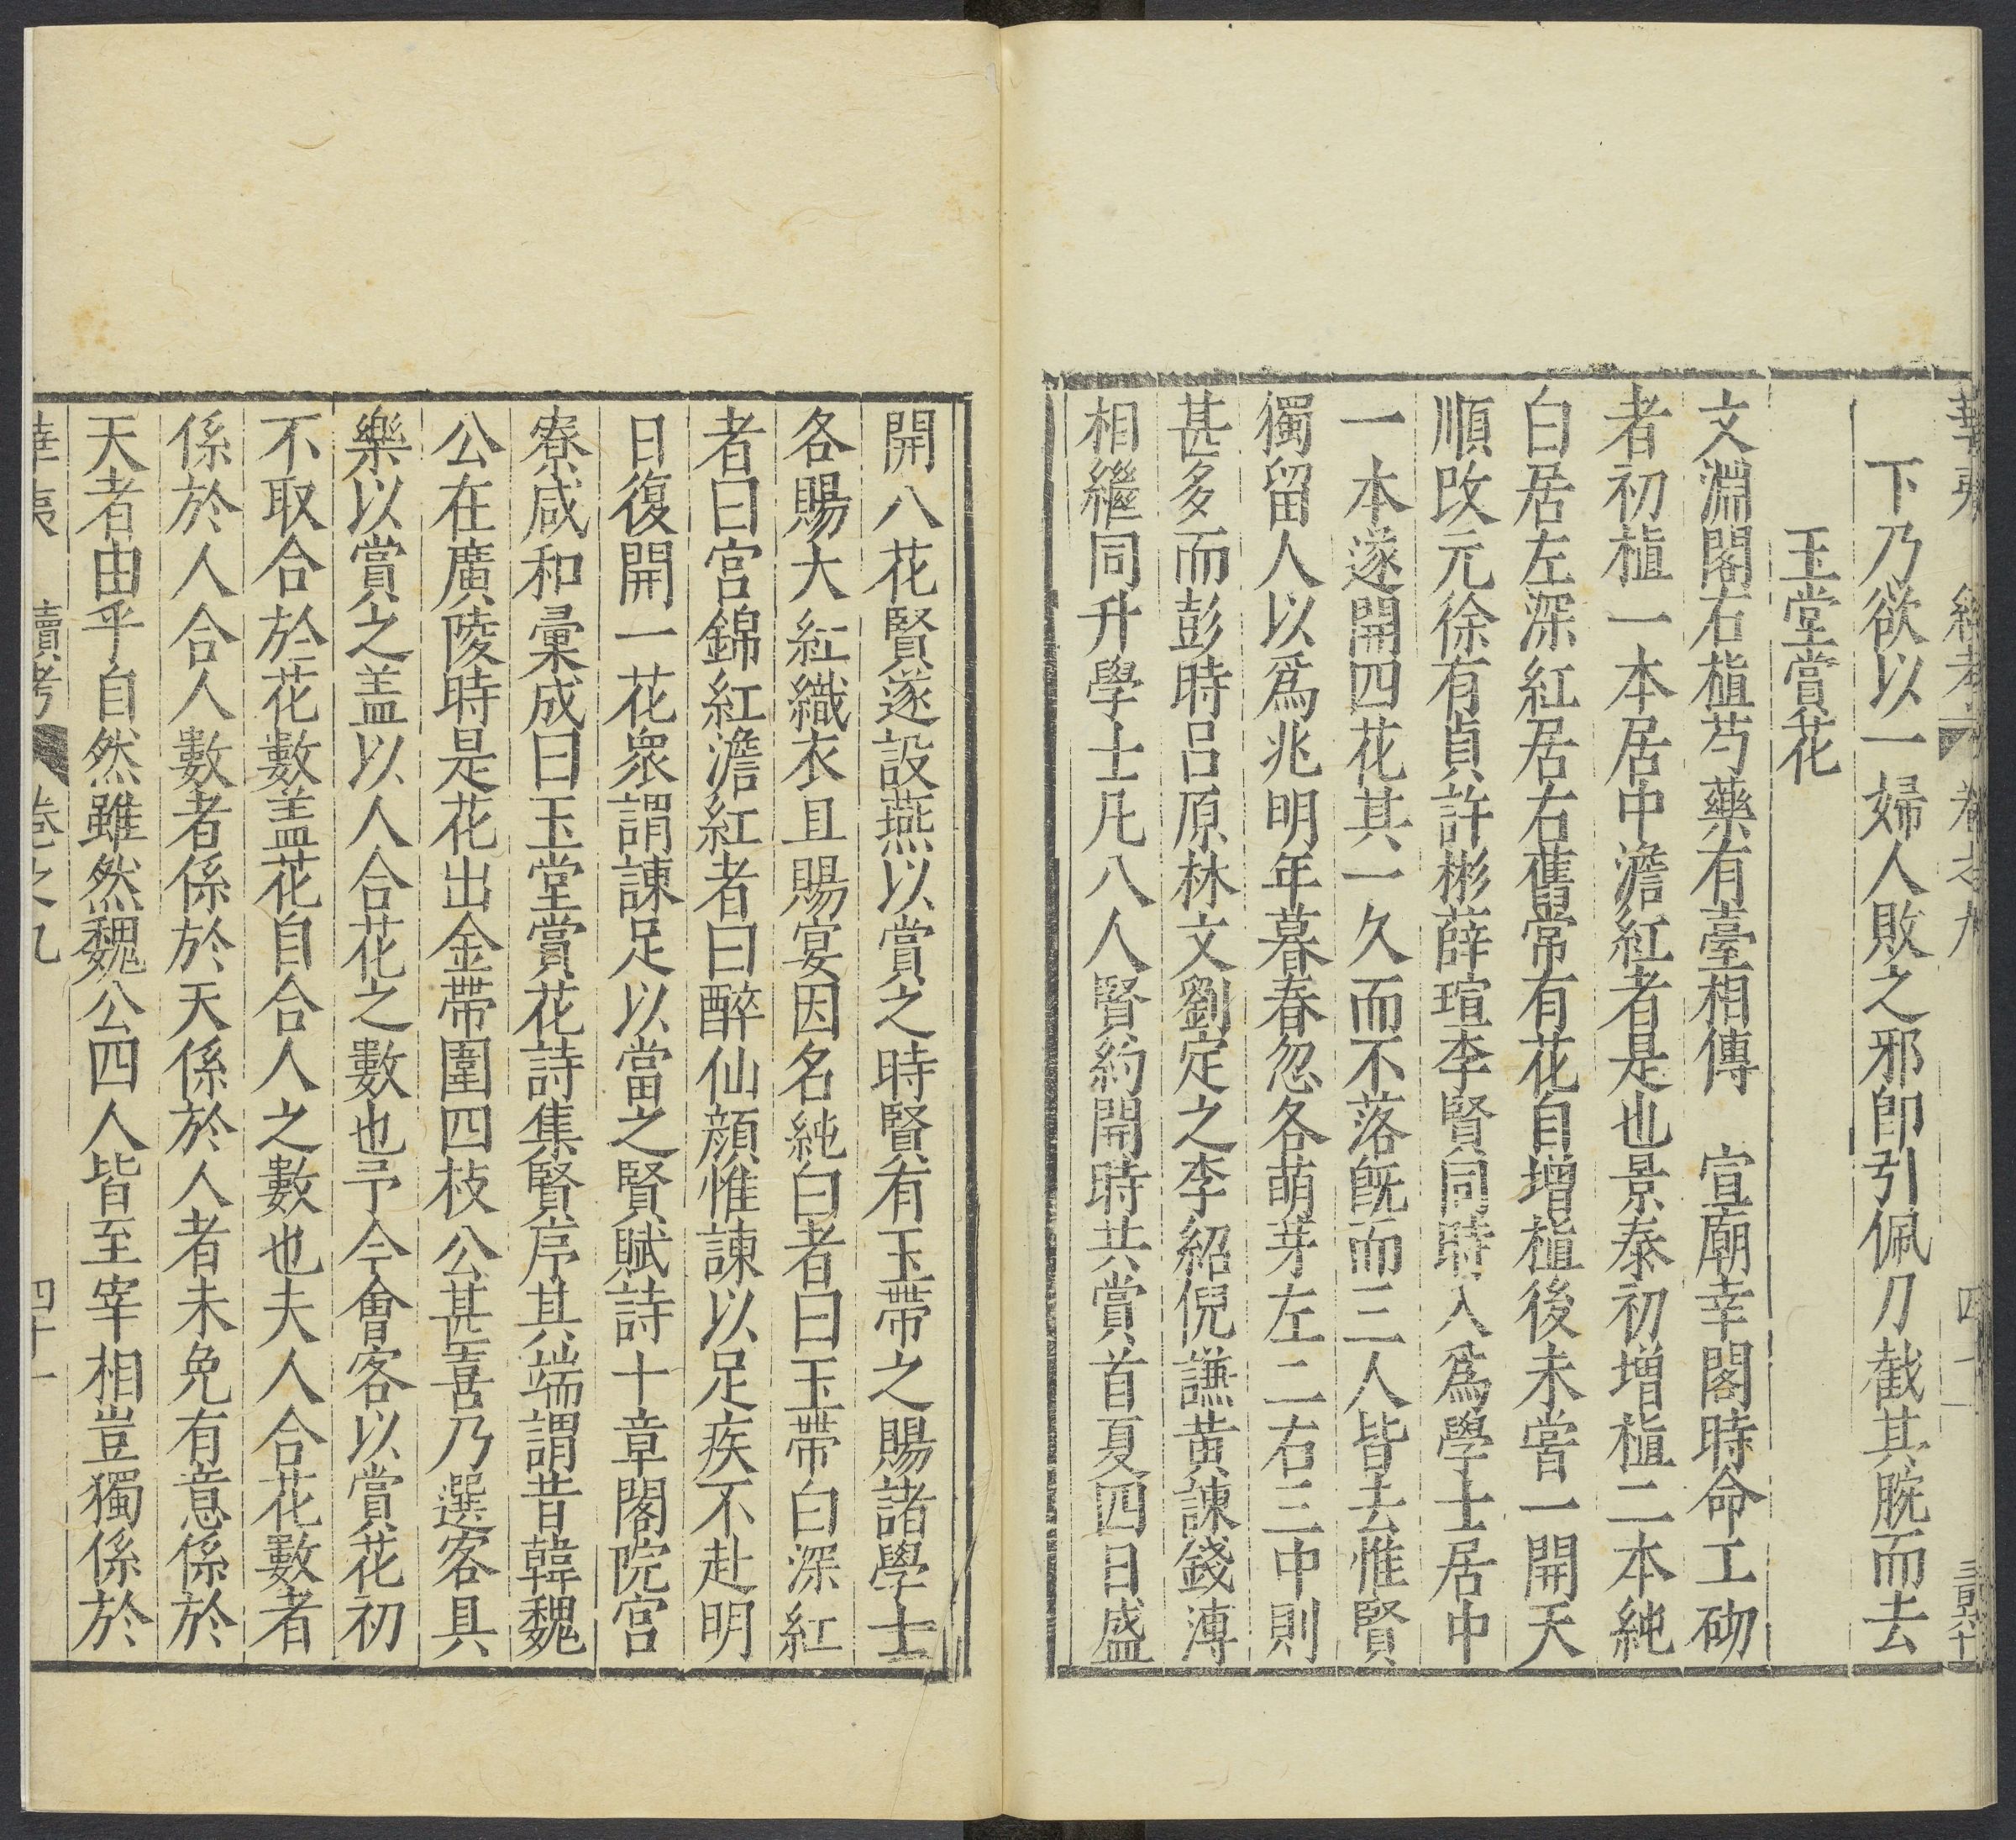 下乃欲以一婦人敗之邪卽引佩刀截其腕而去
玉堂賞花
文淵閣右植芍藥有臺相傳　宣廟幸閣時命工砌
者初植一本居中澹紅者是也景泰初增植二本純
白居左深紅居右舊常有花自增植後未嘗一開天
順改元徐有貞許彬薛瑄李賢同時入爲學士居中
一本遂開四花其一久而不落旣而三人皆去惟賢
獨留人以爲兆明年暮春忽各萌芽左二右三中則
甚多而彭時呂原林文劉定之李紹倪謙黃諫錢溥
相繼同升學士凡八人賢約開時共賞首夏四日盛
開八花賢遂設燕以賞之時賢有玉帶之賜諸學士
各賜大紅織衣且賜宴因名純白者曰玉帶白深紅
者曰宮錦紅澹紅者曰醉仙顔惟諫以足疾不赴明
日復開一花衆謂諫足以當之賢賦詩十章閣院宮
寮咸和彙成曰玉堂賞花詩集賢序其端謂昔韓魏
公在廣陵時是花出金帶圍四枝公甚喜乃選客具
樂以賞之盖以人合花之數也予今會客以賞花初
不取合於花數盖花自合人之數也夫人合花數者
係於人合人數者係於天係於人者未免有意係於
天者由乎自然雖然魏公四人皆至宰相豈獨係於
續考　卷之九　四十一